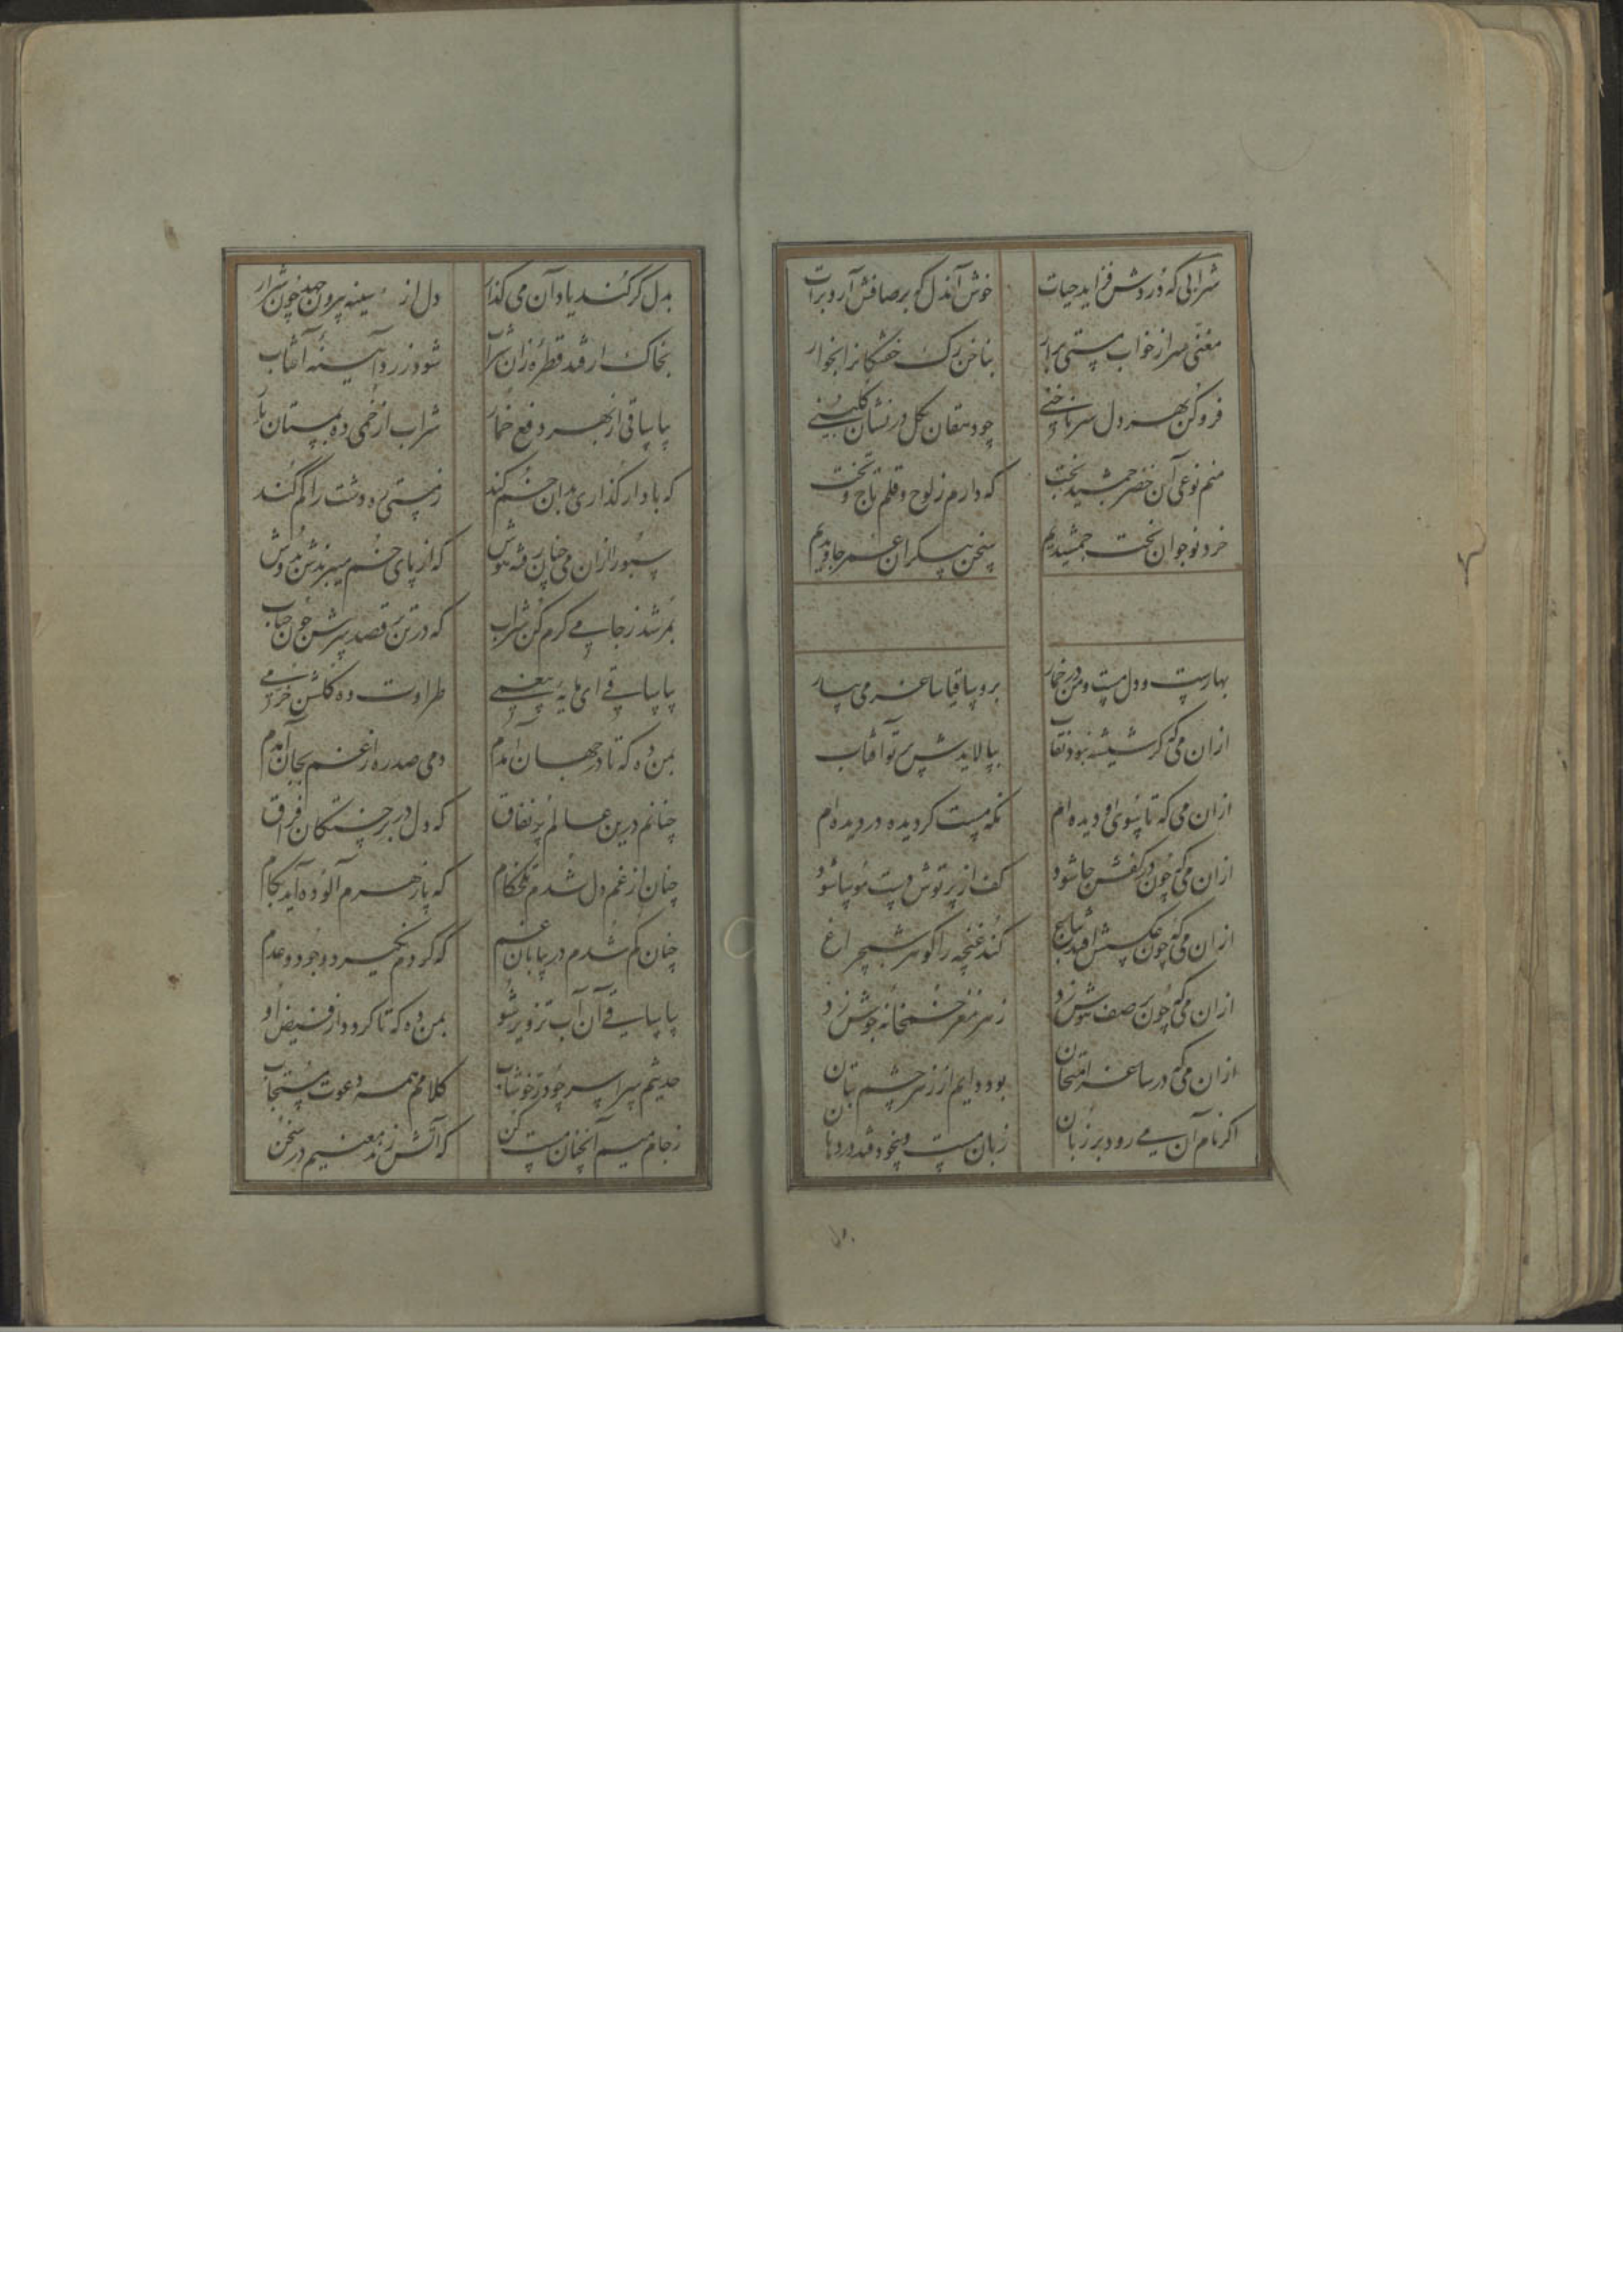 شرابی که دردش فزاید حیات خوش آندل که بر صافش آرد برات
مغنی سر از خواب مستی برآر بناخن رگ خشک را بخوار
فرو کن بهر دل سر ناخنی چو دهقان بگل در نشان گلبنی
منم نوعی آن خضر جمشید بخت که دارم ز لوح و قلم تاج و تخت
خرد نوجوان بخت جمشیدیم سخن بیکران عمر جاویدیم
بهارست و دل مست و من در خمار برو ساقیا ساغر می بیار
ازان می که گر شیشه نبود نقاب بپالایدش پرتو آفتاب
ازان می که تا سوی او دیده ام نگه مست گردیده در دیده ام
ازان می که چون در کفش جا شود کف از پرتوش دست موسا شود
ازان می که چون عکسش افتد بباغ کند غنچه را گوهر شبچراغ
ازان می که چون بر صفش زد ز هر مغز خمخانه جوش زد
ازان می که در ساغر امتحان بود دایم از زهر چشم بتان
اگر نام آن می رود بر زبان زبان مست و بیخود فتد در دهان
بدل گر کند یاد آن می گذار دل از سینه بیرون جهد چون شرار
بخاک ار فتد قطره زان شراب شود ذره آیینه آفتاب
بیا ساقی از بهر دفع خمار شراب از خمی ده بمستان یار
که باد ار گذاری بدان خم کند ز مستی ره دشت را گم کند
سبو را ازان می چنان رفته هوش که از پای خم میبرندش بدوش
بمرشد ز جام می کرم کن شراب که در تن رقصد سرش چون حباب
بیا ساقی ای مایه بیغمی طراوت ده گلشن خرمی
بمن ده که تا در جهان آمدم دمی صد ره از غم بجان آمدم
چنانم درین عالم پر نفاق که دل در بر خستگان فراق
چنان از غم دل شدم تلخکام که پازهرم آلوده آید بکام
چنان گم شدم در بیابان غم که گردم نگیرد وجود و عدم
بیا ساقی آن آب تزویر شو بمن ده که تا گردد از فیض او
حدیثم سراسر چو در خوشاب کلامم همه دعوت مستجاب
ز جام میم آنچنان مست کن که آتش زند معنیم در سخن